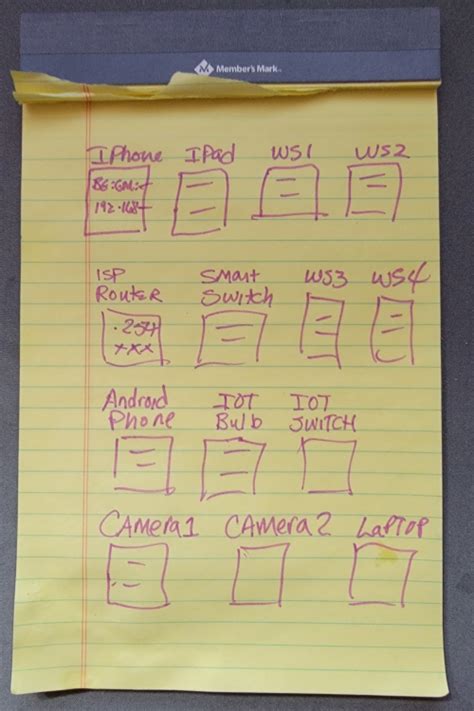 Member's Mark
IPhone IPad WS1 WS2
192.168
ISP Smart WS3 WS4
Router Switch
.254
xxx
Android IOT IOT
Phone Bulb SWITCH
CAMera1 CAMera2 LAPTOP